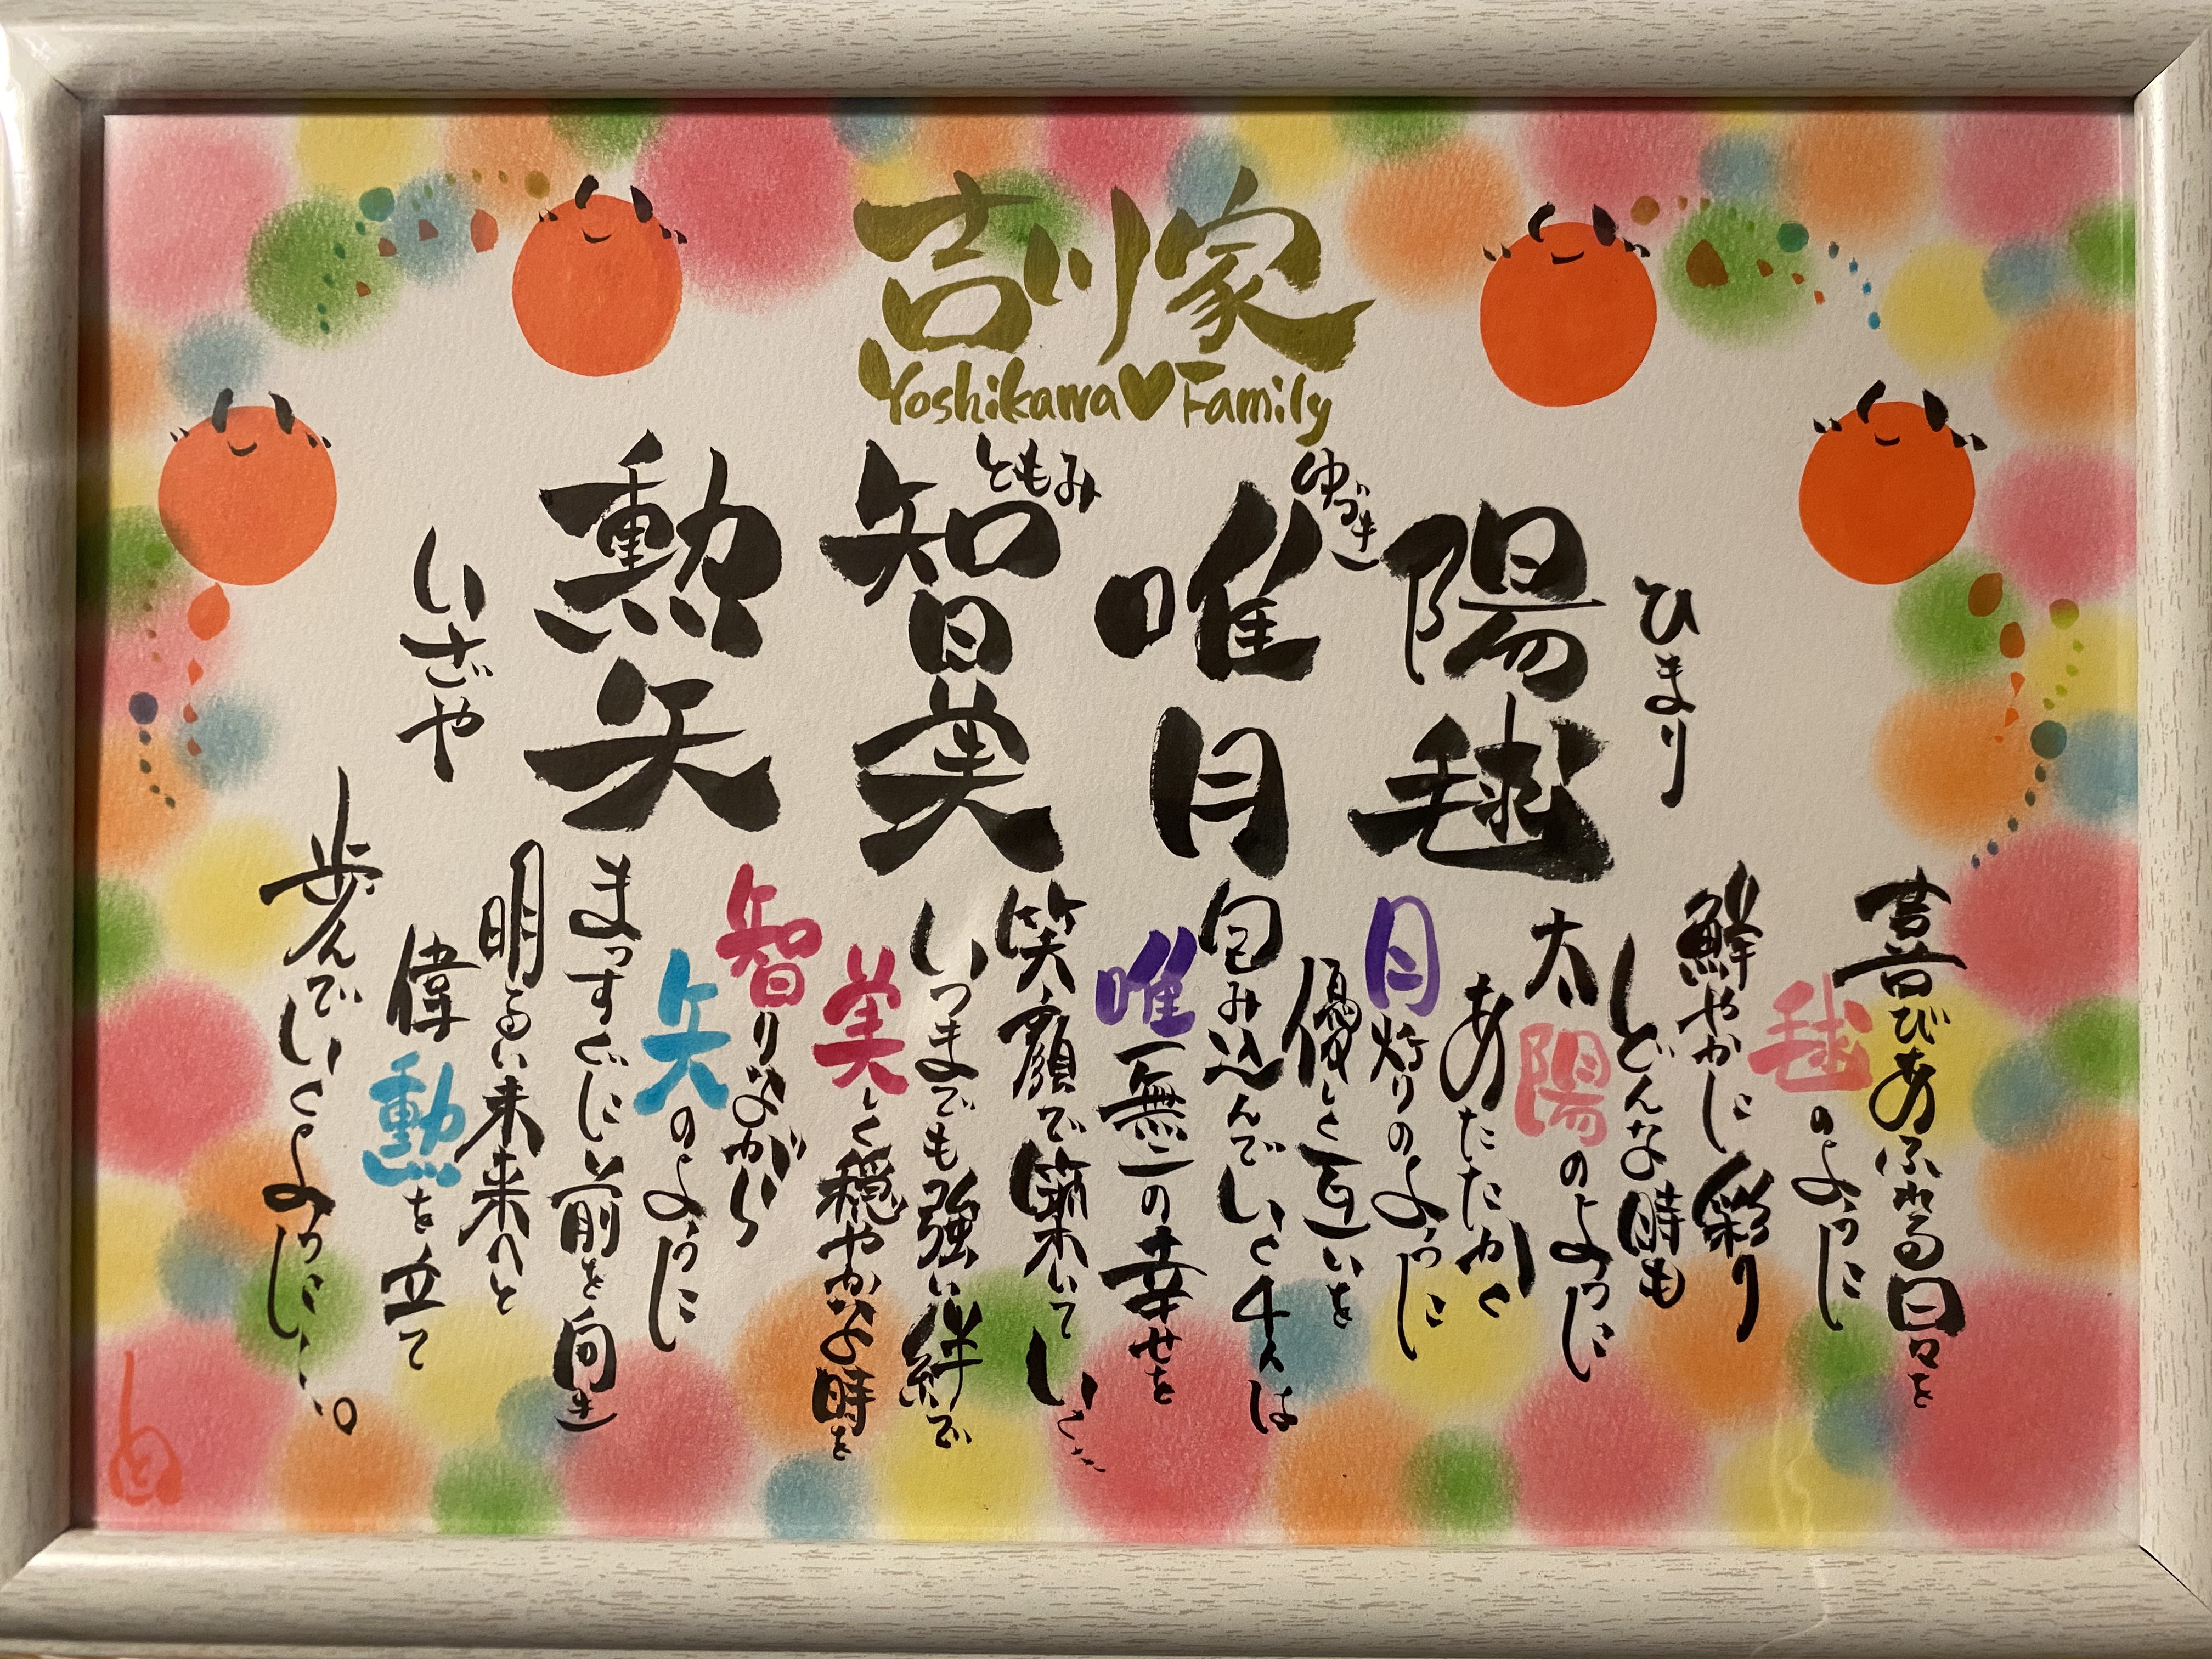 吉川家
Yoshikawa♥Family
陽毬
ひまり
唯月
ゆづき
智美
ともみ
勲矢
いさや
喜びあふれる日々を
毬のように
鮮やかに彩り
どんな時も
太陽のように
あたたかく
月灯りのように
優しく互いを
包み込んでいく4人は
唯一無二の幸せを
笑顔で築いていく…
いつまでも強い絆で
美しく穏やかな時を
智りながら
矢のように
まっすぐに前を向き
明るい未来へと
偉勲を立て
歩んでいくように…。